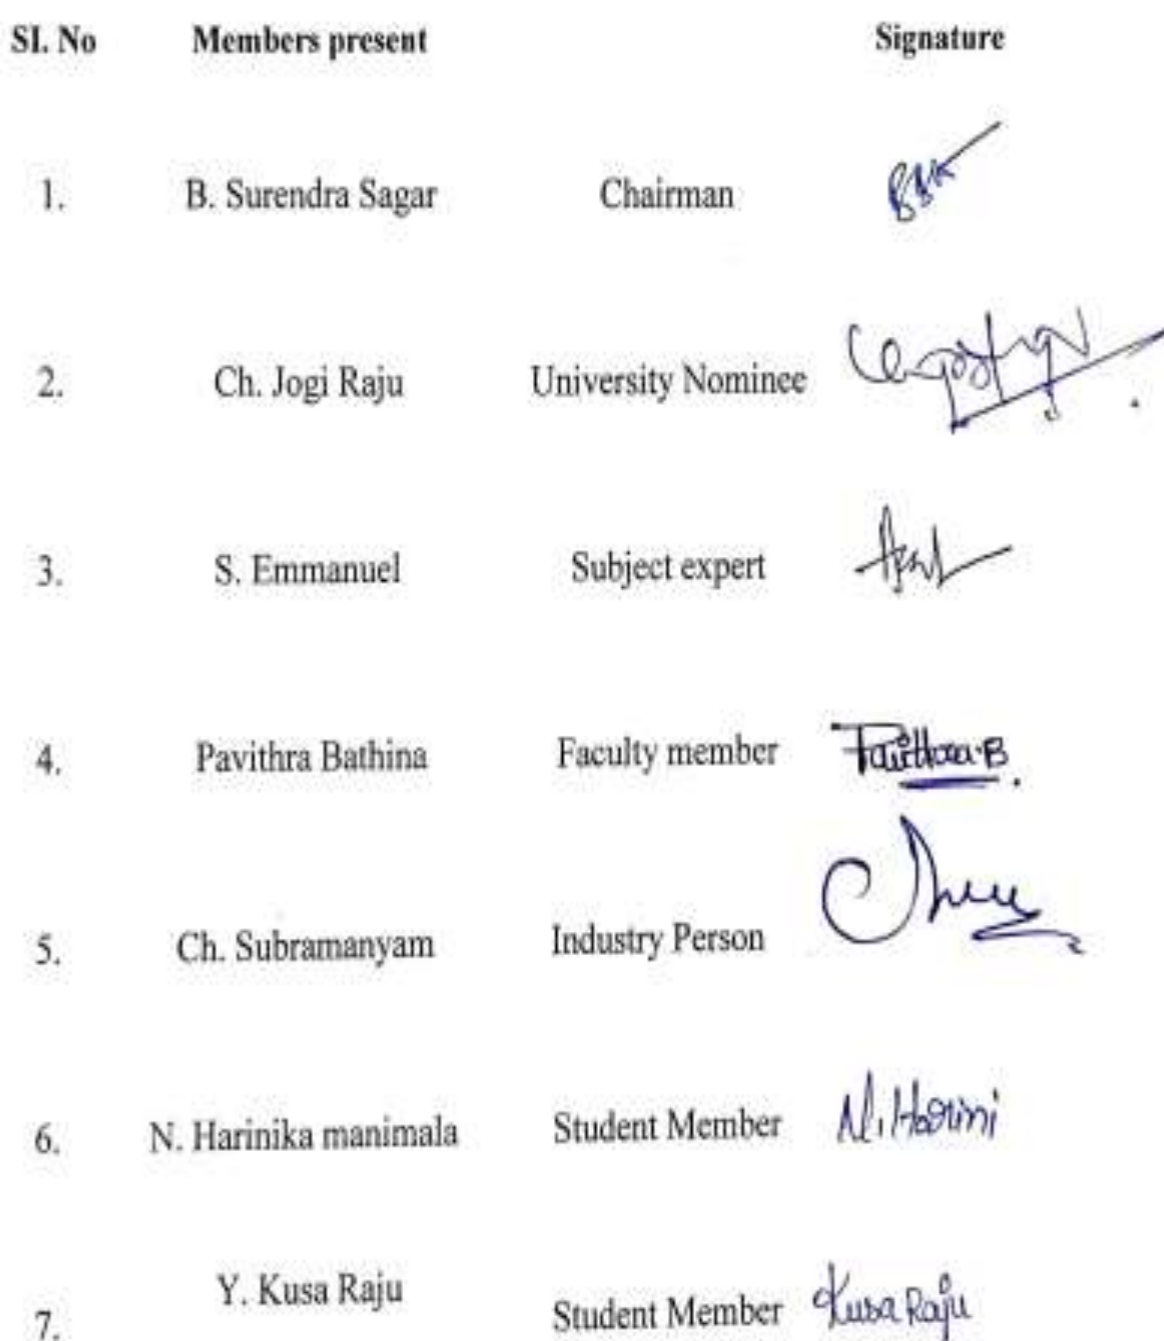 Sl. No Members present Signature
1. B. Surendra Sagar Chairman
2. Ch. Jogi Raju University Nominee
3. S. Emmanuel Subject expert
4. Pavithra Bathina Faculty member Pavithra.B.
5. Ch. Subramanyam Industry Person
6. N. Harinika manimala Student Member N. Harini
7. Y. Kusa Raju Student Member Kusa Raju